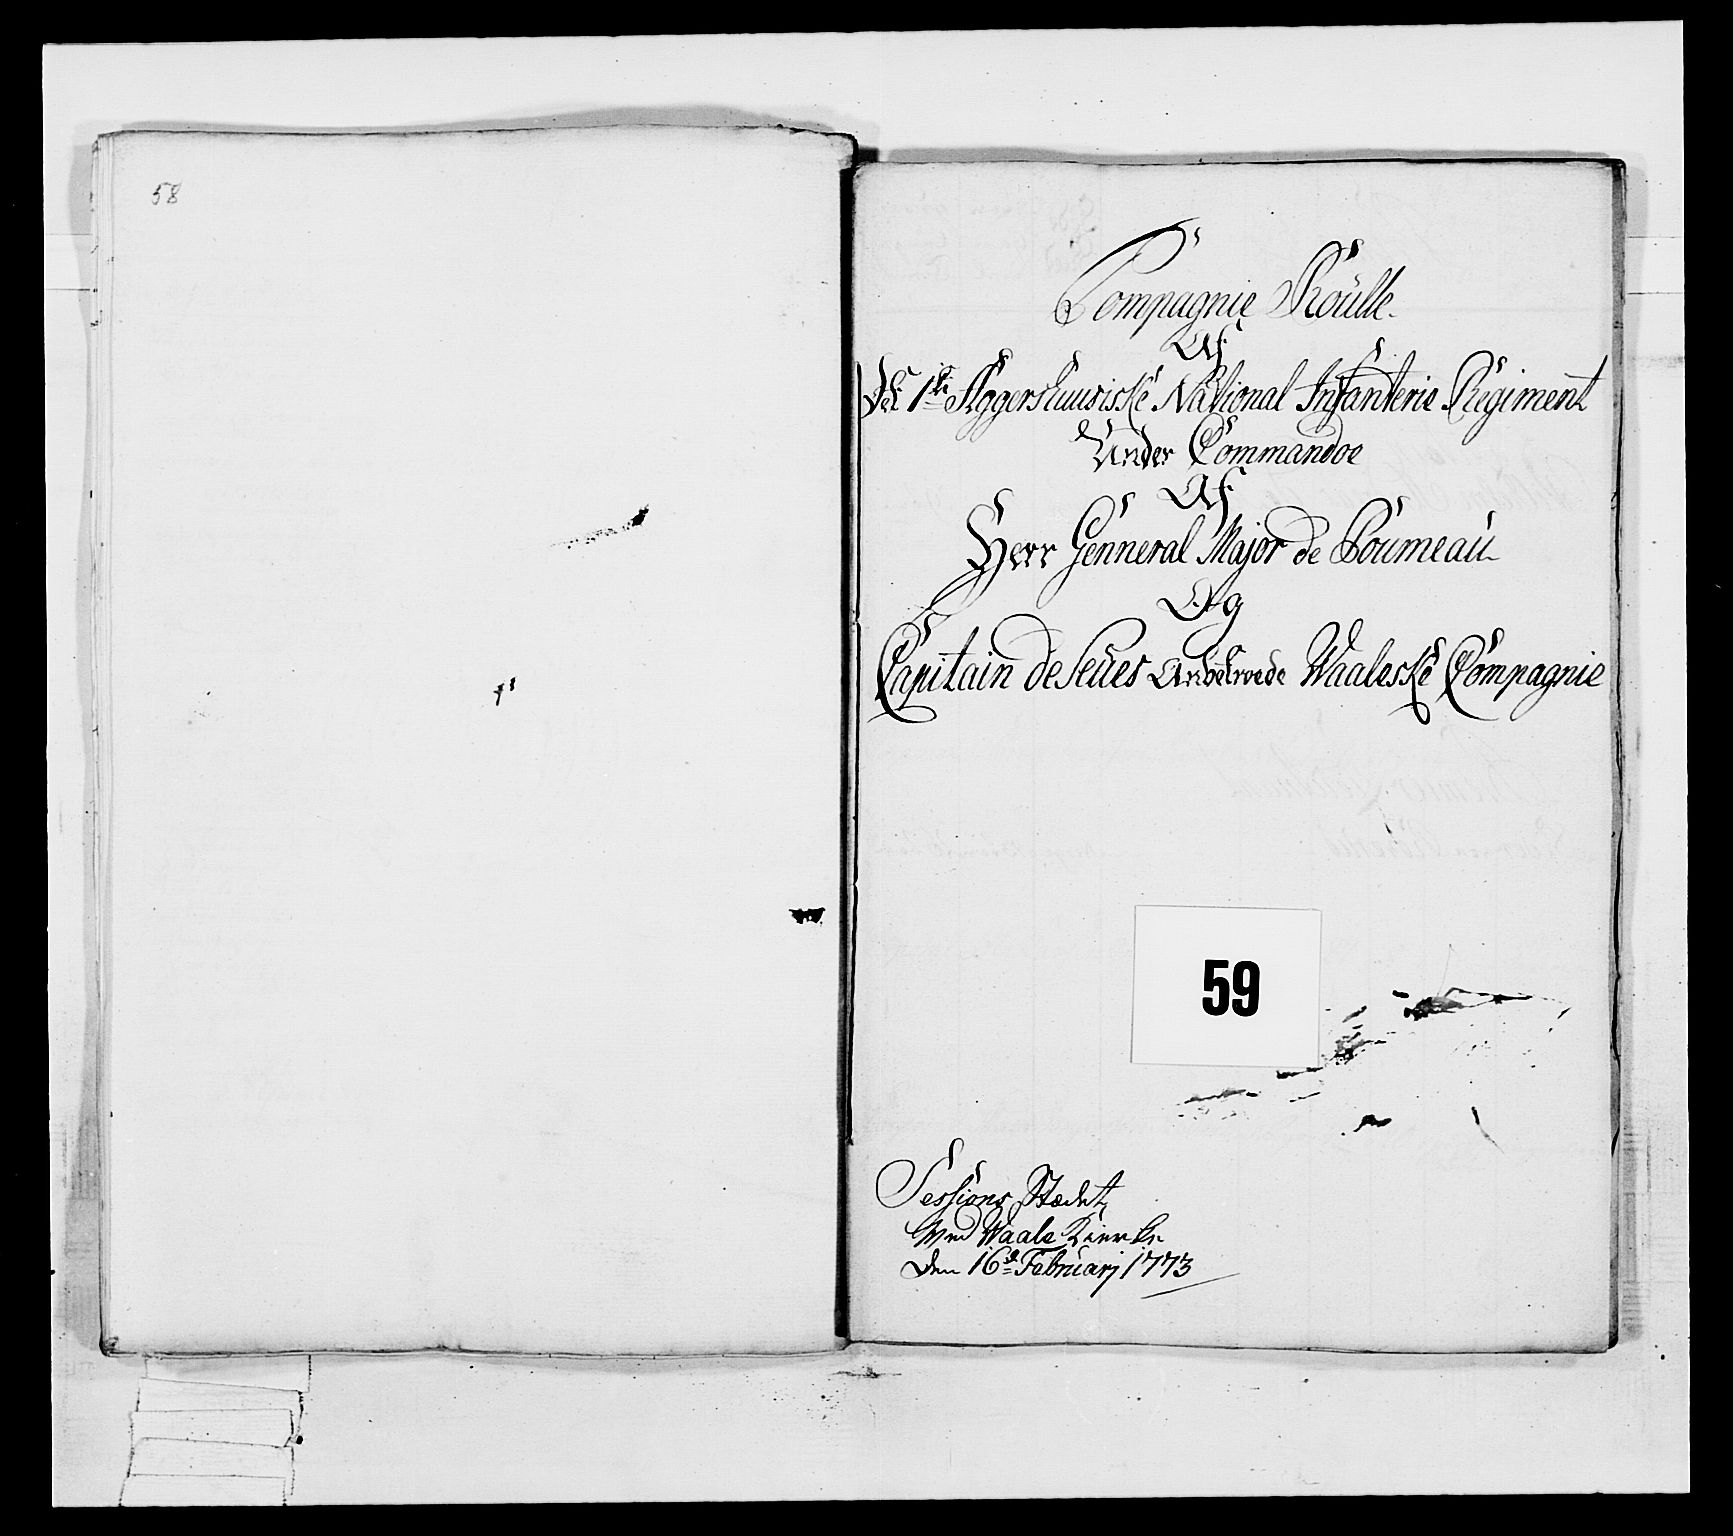 58
Compagnie Roulle
Af
Det 1ste Aggershuusiske National Infanterie Regiment
Under Commandoe
Af
Herr Genneral Major de Poumeau
Og
Capitain de Seües Anbetroede Waaleske Compagnie
59
Sessions Stædet
Ved Waale Kierke
Den 16de Februarj 1773